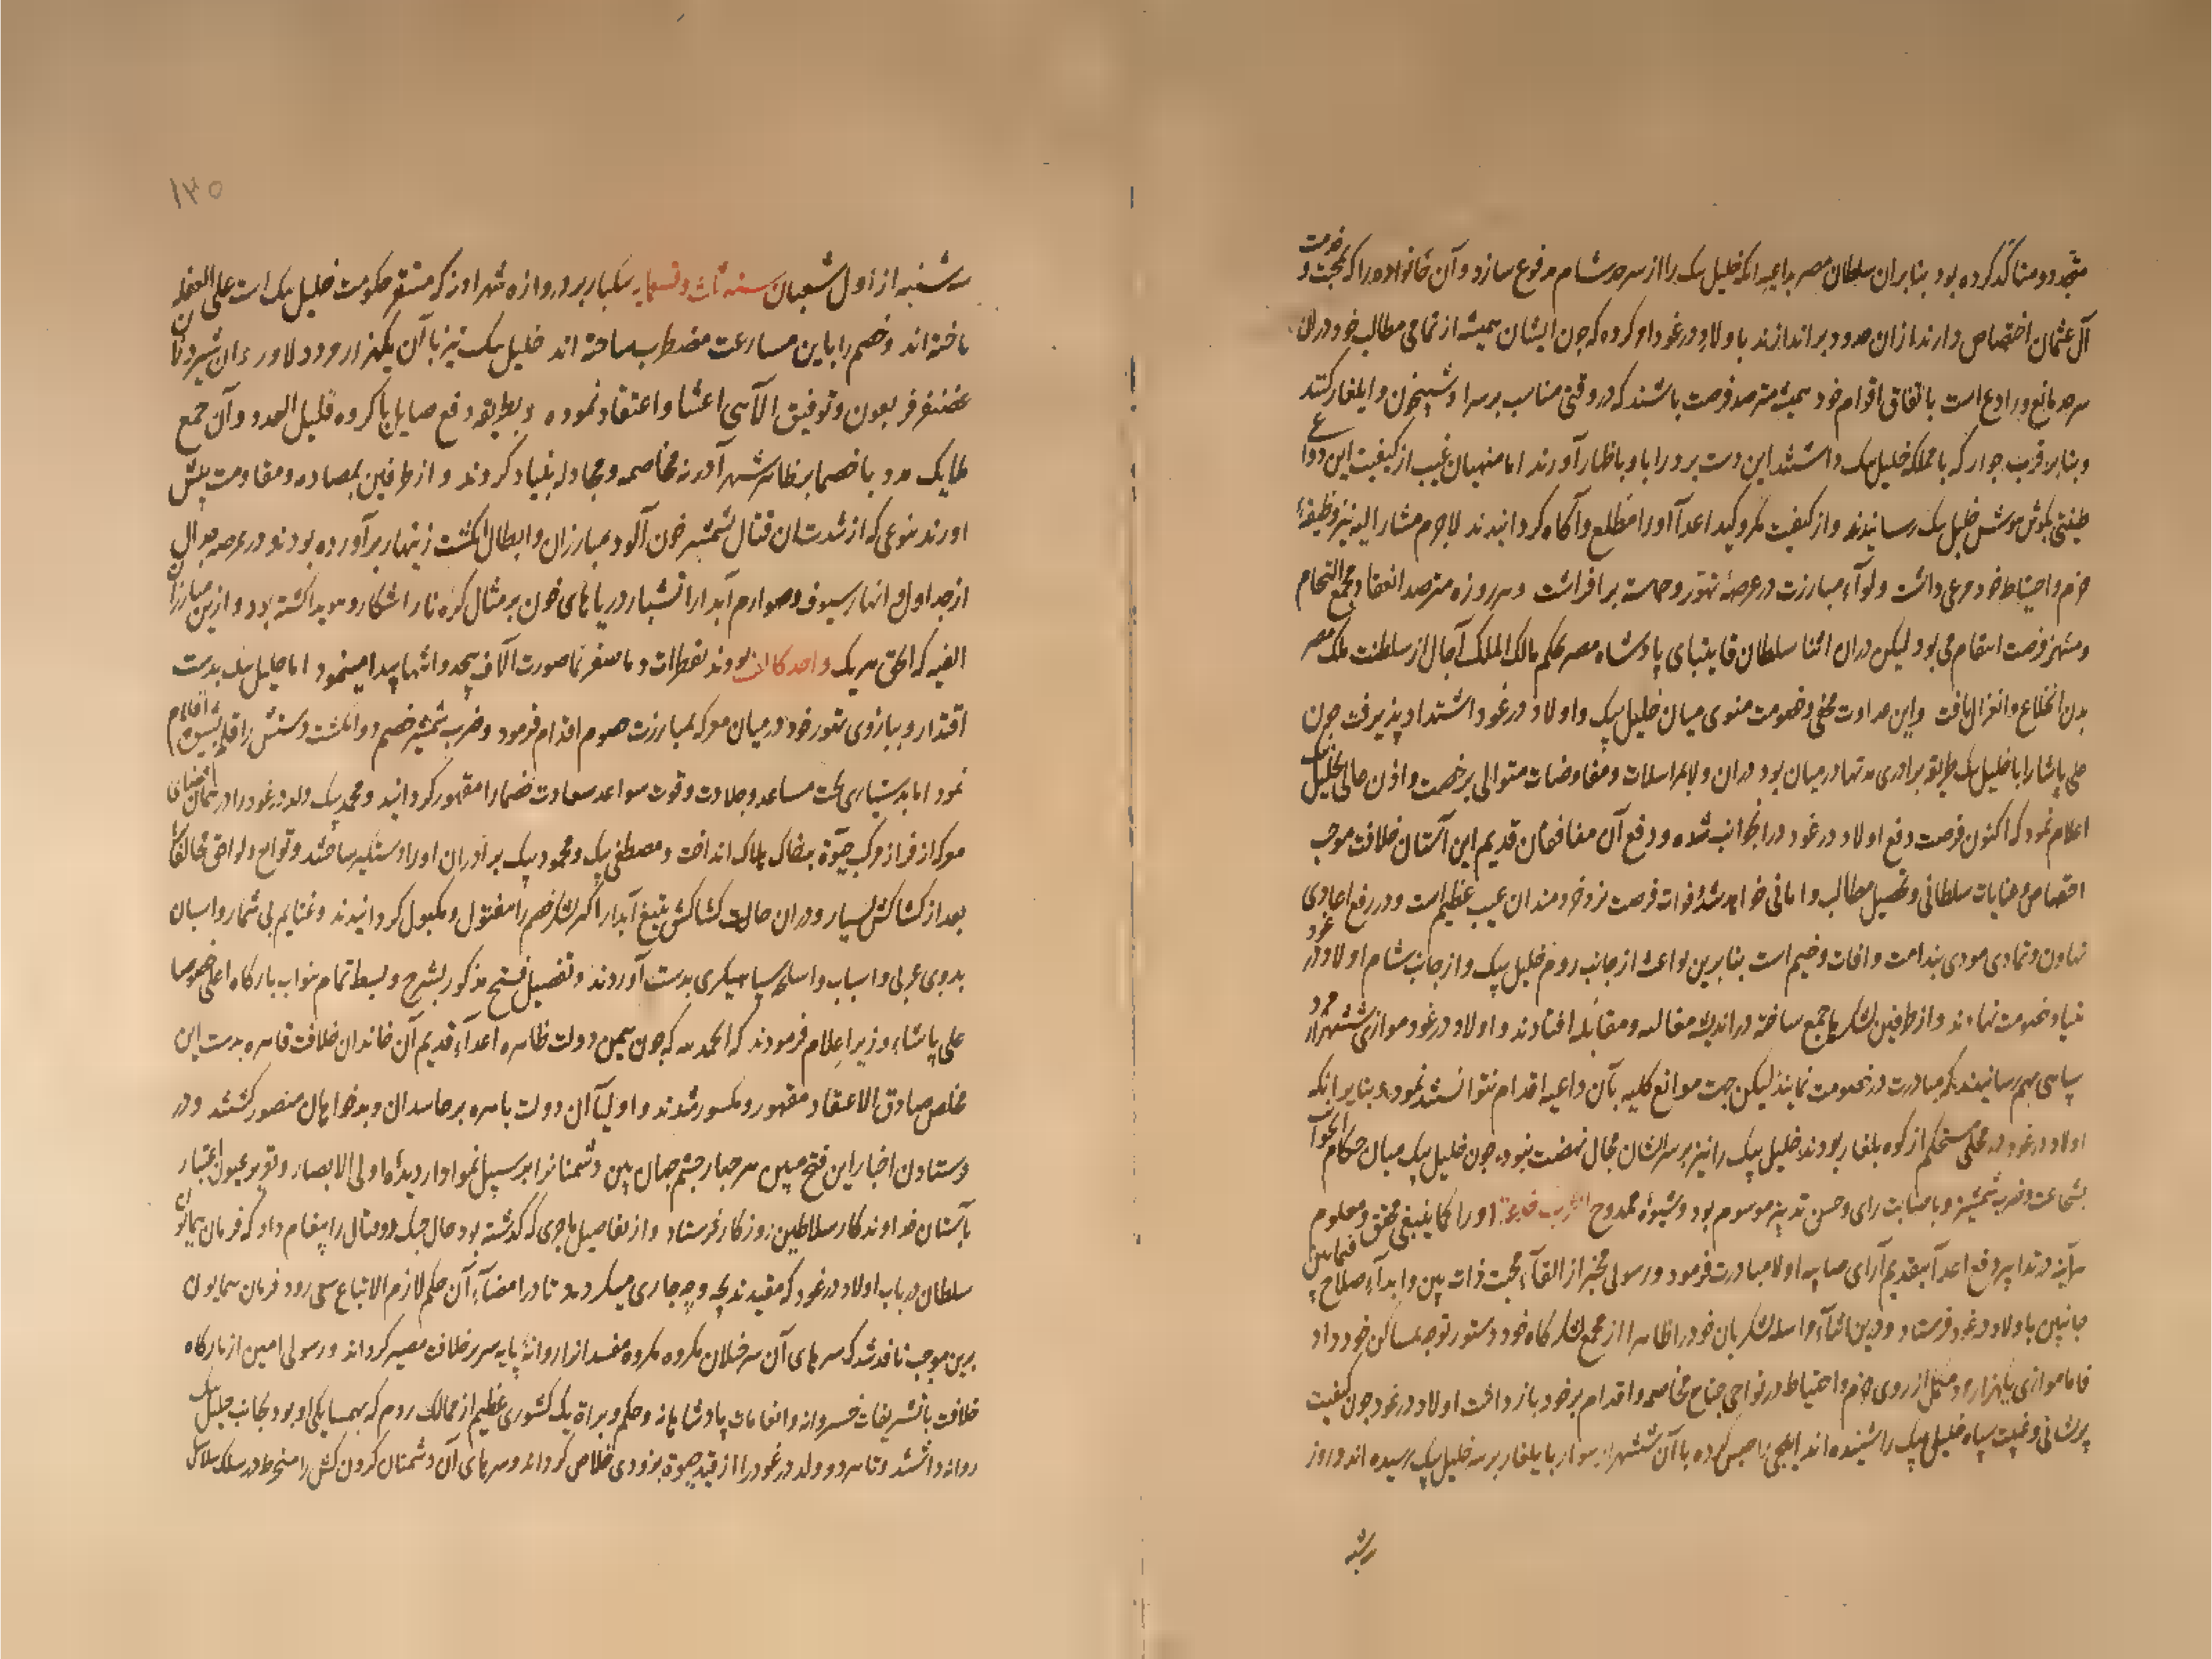 متجدد و متاکد کرده بود بنابران سلطان مصر بداعیه انکه خلیل بیک را از سرحد شام مرفوع سازد و آن خانواده را که بمحبت و خدمت
آل عثمان اختصاص دارند ازان حدود براندازند با اولاد درغود امر کرده که چون ایشان همیشه از تمامی مطالب خود دران
سرحد مانع و رادع است باتفاق اقوام خود همیشه مترصد فرصت باشند که در وقتی مناسب بر سر او شبیخون و ایلغار کنند
و بنابر قرب جوار که با مملکه خلیل بیک داشتند این دست برد را باو باظهار آورند اما منهیان غیب از کیفیت این دواعی
طینتی بکوش هوش خلیل بیک رسانیدند و از کیفیت مکر و کید اعدا او را مطلع و آکاه کردانیدند لاجرم مشار الیه نیز وظیفهٔ
حزم و احتیاط خود مرعی داشت و لوآء مبارزت در عرصهٔ تهور و حماسه برافراشت و هر روزه مترصد انعقاد مجمع التحام
و منتهز فرصت انتقام می بود لیکن دران اثنا سلطان قایتبای پادشاه مصر بحکم مالک الملک آجال از سلطنت ملک مصر
بدن انخلاع و انعزال یافت و این عداوت مخفی و خصومت منوی میان خلیل بیک و اولاد درغود اشتداد پذیرفت چون
علی پاشا را با خلیل بیک طریقه برادری مدتها در میان بود دران ولا بمراسلات و مفاوضات متوالی برخصت و اذن حالی بخلیل بیک
اعلام نمود که اکنون فرصت دفع اولاد درغود دران جوانب شده و دفع آن منافقان قدیم این آستان خلافت موجب
اختصاص عنایات سلطانی و تحصیل مطالب و امانی خواهد شد و فوات فرصت نزد خردمندان عیب عظیم است و در رفع اعادی
تهاون و تمادی مودی بندامت و آفات وخیم است بنابرین بواعث از جانب روم خلیل بیک و از جانب شام اولاد درغود
بنیاد خصومت نهادند و از طرفین لشکرها جمع ساخته در اندیشه مقاتله و مقابله افتادند و اولاد درغود موازی ششهزار مرد
سپاهی بهم رسانیدند که مبادرت در خصومت نمایند لیکن جهت موانع کلیه بآن داعیه اقدام نتوانستند نمود و بنابر انکه
اولاد درغود در محلی مستحکم از کوه بلغار بودند خلیل بیک را نیز بر سر ایشان مجال نهضت نبود چون خلیل بیک میان حکام آن جوانب
بشجاعت و ضرب شمشیر و باصابت رای و حسن تدبیر موسوم بود و شیوهٔ ممدوح الحرب خدعة او را کما ینبغی محقق و معلوم
هرآینه در تدابیر دفع اعدا بتقدیم آرای صایبه اولا مبادرت فرمود و رسولی مخبر از القآء محبت ذات بین و ابدآء صلاح فیمابین
جانبین باولاد درغود فرستاد و درین اثنآء مراسله لشکریان خود را ظاهرا از مجمع لشکرکاه خود دستور توجه بمساکن خود داد
فاما موازی یکهزار مرد مکمل از روی حزم و احتیاط در نواحی جناح مخاصمه و اقدام بر خود بازداشت اولاد درغود چون کیفیت
پریشانی و غیبت سپاه خلیل بیک را شنیده اند ایلچی را حبس کرده با آن ششهزار سوار بایلغار بر سر خلیل بیک رسیده اند و روز
سه شنبه
۱۳۵
سه شنبه از اول شعبان سنه ثلث و تسعمایه یکبار بر دروازه شهر اوزکه مستقر حکومت خلیل بیک است علی الغفله
تاخته اند و خصم را باین مسارعت مضطرب ساخته اند خلیل بیک نیز با آن یکهزار مرد دلاور و ان شیردلان
غضنفر فر بعون و توفیق الآهی اعتنا و اعتقاد نموده و بطریقه دفع صایل با کروه قلیل العدد و آن جمع
ملایک مدد با خصما بر ظاهر شهر آدرنه مخاصمه و مجادله بنیاد کردند و از طرفین بمصادمه و مقاومت پیش
اورند بنوعی که از شدت ان قتال شمشیر خون آلود مبارزان و ابطال انکشت زینهار برآورده بودند در عرصه جدال
از جداول و انهار سیوف و صوارم آبدار اتشبار دریاهای خون بر مثال کرهٔ نار اشکار و هویدا کشته بود و ازین مبارزان
الفیه که الحق هر یک واحد کالالف بودند بقطرات دما صفرنما صورت آلاف بیحد و انتها پیدا مینمود اما خلیل بیک بدست
اقتدار و ببازوی تهور خود در میان معرکه بمبارزت خصوم اقدام فرمود و ضرب شمشیر خصم دو انکشت دستش را قلم
نمود اما بدستیاری بخت مساعد و جلادت و قوت سواعد سعادت خصما را مقهور کردانید و محمد بیک ولد درغود را در همان اثنای
معرکه از فراز مرکب حیوة بخاک هلاک انداخت و مصطفی بیک و محمود بیک برادران او را دستکیر ساختند و توابع و لواحق مخالفان
بعد از کشاکش بسیار و دران حالت کشاکش بتیغ آبدار اکثر لشکر خصم را مقتول و مکبول کردانیدند و غنایم بی شمار و اسبان
بدوی عربی و اسباب و اسلحه سپاهیکری بدست آوردند و تفصیل فتح مذکور بشرح و بسط تمام بنواب بارکاه اعلی خصوصا
علی پاشاء وزیر اعلام فرمودند که الحمد لله که چون بیمن دولت ظاهره اعدآء قدیم آن خاندان خلافت قاهره بدست این
مخلص صادق الاعتقاد مقهور و مکسور شدند و اولیآ آن دولت باهره بر حاسدان و بدخواهان منصور کشتند و در
فرستادن اخبار این فتح مبین هر چهار چشم جهان بین دشمنانرا بر سبیل نمودار دیدهٔ اولی الابصار و تنویر عیون اعتبار
بآستان خداوندکار سلاطین روزکار فرستاد و از تفاصیل ماجری که کذشته بود حال جنک و قتال را پیغام داد که فرمان همایون
سلطان در باب اولاد درغود که مقیدند بچه وجه جاری میکردد تا در امضآء آن حکم لازم الاتباع سعی رود فرمان همایون
برین موجب نافذ شد که سرهای آن سرخیلان مکروه مکروه مفسدانرا روانهٔ پایه سریر خلافت مصیر کرداند و رسولی امین از بارکاه
خلافت باتشریفات خسروانه و انعامات پادشاهانه و حکم و براة یک کشوری عظیم از ممالک روم که بهمسایکی او بود بجانب خلیل بیک
روانه داشتند و تا هر دو ولد درغود را از قید حیوة بزودی خلاص کرداند و سرهای آن دشمنان کردن کش را منخرط در سلک سلاسل